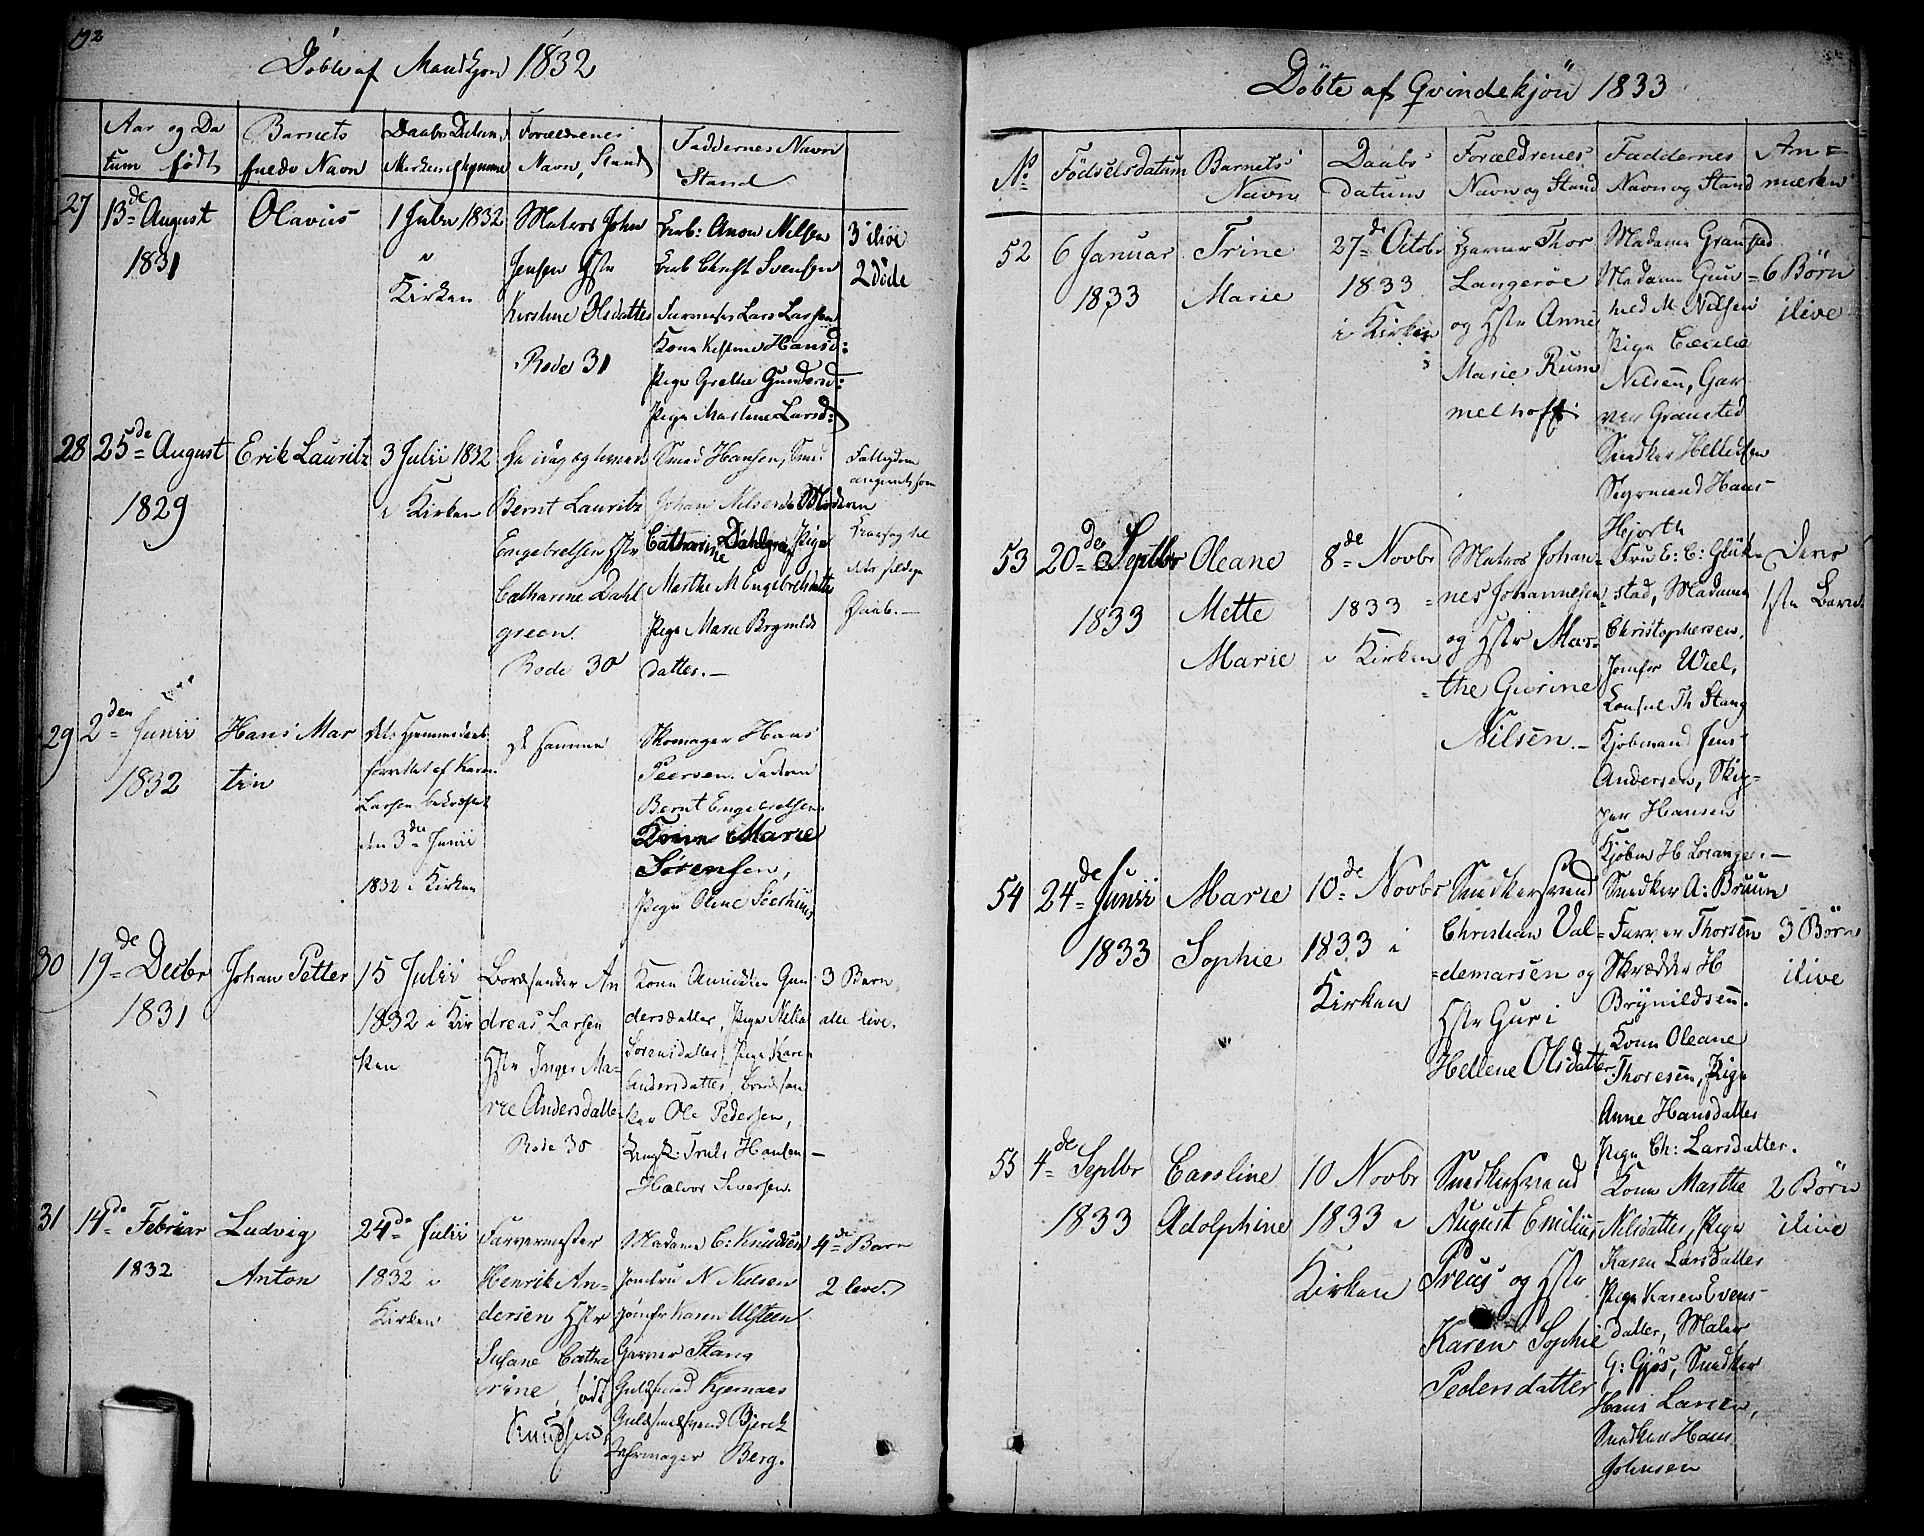 192
Döbte af Mandkjøn 1832
Aar og Da
tum födt
Barnets
fulde Navn
Daabs Datum
Forældrenes
Navn, Stand
Faddernes Navn
Stand
27
13de August
1831
Olavius
1 Julii 1832
i
Kirken
Matros John
Jensen Hstr
Kirstine Olsdatter
Rode 31
Arb: Anon Nilsen
Arb Christ Svensen
Lars Larsen
Kone Kistine Hansd:
Pige Grethe Gundersd:
Pige Martine Larsd:
3 ilive
2 døde
28
25de August
1829
Erik Lauritz
3 Julii 1832
i Kirken
Bernt Lauritz
Engebretsen Hstr
Catharine Dahl
green.
Rode 30
Smed Hansen, Smed
Johan Nilsen, Moderen
Catharine Dahlgren, Pige
Marthe M Engebretsdatter
Pige Marie Brynilds
datter.—
Fattigdom
angivet som
Aarsag til
Daab.—
29
2den Junii
1832
Hans Mar
tin
forrettet af Karen
Larsen bekræftet
den 3die Junii
1832 i Kirken
De samme
Skomager Hans
Peersen. Faderen
Bernt Engebretsen.
Kone Marie
Sörensen,
Pige Olene Seehuus
30
19de Decbr
1831
Johan Petter
15 Julii
1832 i Kir
ken
Bordsauder An
dreas Larsen
Hstr Inger Ma-
rie Andersdatter
Rode 30
Kone Anne Gun
dersdatter, Pige Nille
Sörensdatter, Pige Karen
Andersdatter,
Ole Pedersen,
Truls Hansen
Halvor Siversen.
3 Barn
alle live.
31
14de Februar
1832
Ludvig
Anton
24de Julii
1832 i
Kirken
Farvermester
Henrik An-
dersen Hstr
Susane Catha
rine, födt
Knudsen,
Madame C: Knudsen
Jomfru N Nielsen
Jomfr Karen Ulsteen
Garver Stang
Guldsmed Kjernaas
Guldsmedsvend Bjerck
Berg.
4de Barn
2 leve.
Döbte af Qvindekjön 1833
No
Födselsdatum
Barnets
Navn
Daabs
datum
Forældrenes
Navn og Stand
Faddernes
Navn og Stand
An=
mærkn
52
6 Januar
1833
Trine
Marie
27de Octobr
1833
i Kirken
Garver Thor
Langeröe
og Hstr Anne
Marie Rum
melhoff.
Madame Gransted
Madame Gun
hild M. Nilsen
Pige Cecilie
Nilsen, Gar
ver Gransted
Snedker Hellessen
Styrmand Hans
Hjorth
6 Børn
ilive
53
20de Septbr
1833
Oleane
Mette
Marie
8de Novbr
1833
i Kirken
Matros Johan=
nes Johannesen
og Hstr Mar=
the Gurine
Nilsen.—
Fru E: C: Glük=
stad, Madame
Christophersen,
Jomfr Wiel,
Consul Th Stang
Kjöbmand Jens
Andersen, Skip=
per Hansen
Kjöbm H Lorange.—
Deres
1ste Barn
54
24de Junii
1833
Marie
Sophie
10de Novbr
1833 i
Kirken
Snedkersvend
Christian Val=
demarsen og
Hstr Guri
Hellene Olsdatter
Snedker A: Bruun
Farver Thorsen
Skrædder H
Brynildsen.
Kone Oleane
Thoresen, Pige
Anne Hansdatter
Pige Ch: Larsdatter.
3 Børn
ilive
55
4de Septbr
1833
Caroline
Adolphine
10 Novbr
1833 i
Kirken
Snedkersvend
August Emilius
Preus og Hstr
Karen Sophie
Pedersdatter
Kone Marthe
Nilsdatter, Pige
Karen Larsdatter
Pige Karen Evens=
datter, Maler
G: Gjös, Snedker
Hans Larsen,
Snedker Hans
Johnsen
2 Børn
ilive